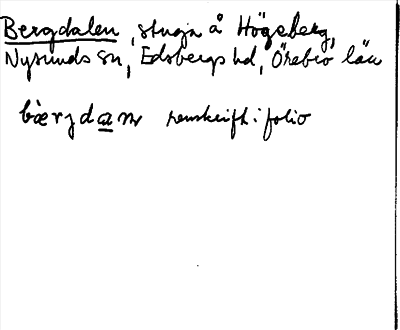 Bergdalen, stuga å Högeberg,
Nysunds sn, Edsbergs hd, Örebro län
bæ̀rjdan renskrift i folio